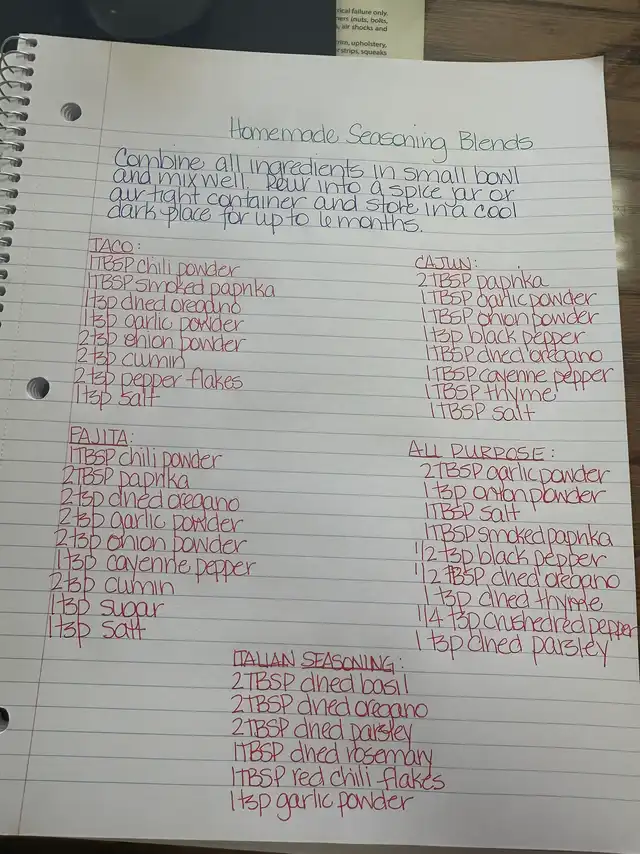 rical failure only.
ners (nuts, bolts,
, air shocks and
upholstery,
strips, squeaks
Homemade Seasoning Blends
Combine all ingredients in small bowl
and mix well. Pour into a spice jar or
air tight container and store in a cool
dark place for up to 6 months.
TACO:
1 TBSP chili powder
1 TBSP smoked paprika
1 tsp dried oregano
1 tsp garlic powder
2 tsp onion powder
2 tsp cumin
2 tsp pepper flakes
1 tsp salt
CAJUN:
2 TBSP paprika
1 TBSP garlic powder
1 TBSP onion powder
1 tsp black pepper
1 TBSP dried oregano
1 TBSP cayenne pepper
1 TBSP thyme
1 TBSP salt
FAJITA:
1 TBSP chili powder
2 TBSP paprika
2 tsp dried oregano
2 tsp garlic powder
2 tsp onion powder
1 tsp cayenne pepper
2 tsp cumin
1 tsp sugar
1 tsp salt
ALL PURPOSE:
2 TBSP garlic powder
1 tsp onion powder
1 TBSP salt
1 TBSP smoked paprika
1/2 tsp black pepper
1/2 TBSP dried oregano
1 tsp dried thyme
1/4 tsp crushed red pepper
1 tsp dried parsley
ITALIAN SEASONING:
2 TBSP dried basil
2 TBSP dried oregano
2 TBSP dried parsley
1 TBSP dried rosemary
1 TBSP red chili flakes
1 tsp garlic powder